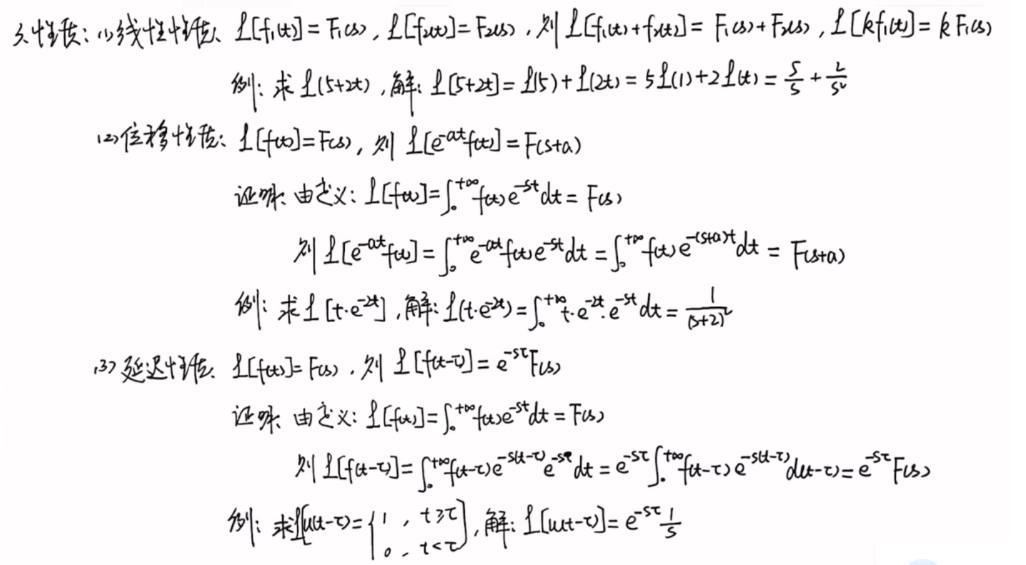 3.性质: (1)线性性质、ℒ[f₁(t)]=F₁(s), ℒ[f₂(t)]=F₂(s), 则 ℒ[f₁(t)+f₂(t)] = F₁(s)+F₂(s), ℒ[kf₁(t)]=kF₁(s)
例: 求ℒ(5+2t), 解: ℒ[5+2t]=ℒ(5)+ℒ(2t)=5ℒ(1)+2ℒ(t)=5/s+2/s²
(2)位移性质: ℒ[f(t)]=F(s), 则 ℒ[e^{-at}f(t)]=F(s+a)
证明、由定义: ℒ[f(t)]=∫₀^{+∞}f(t)e^{-st}dt=F(s)
则 ℒ[e^{-at}f(t)]=∫₀^{+∞}e^{-at}f(t)e^{-st}dt=∫₀^{+∞}f(t)e^{-(s+a)t}dt=F(s+a)
例: 求ℒ[t·e^{-2t}], 解: ℒ(t·e^{-2t})=∫₀^{+∞}t·e^{-2t}·e^{-st}dt=1/(s+2)²
(3)延迟性质、ℒ[f(t)]=F(s), 则 ℒ[f(t-τ)]=e^{-sτ}F(s)
证明、由定义: ℒ[f(t)]=∫₀^{+∞}f(t)e^{-st}dt=F(s)
则 ℒ[f(t-τ)]=∫₀^{+∞}f(t-τ)e^{-s(t-τ)}e^{-sτ}dt=e^{-sτ}∫₀^{+∞}f(t-τ)e^{-s(t-τ)}d(t-τ)=e^{-sτ}F(s)
例: 求ℒ[u(t-τ)={1, t≥τ
0, t<τ], 解: ℒ[u(t-τ)]=e^{-sτ}1/s